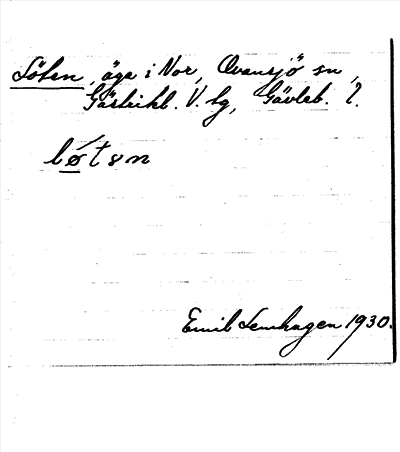 Löten, äga i Nor, Ovansjö sn,
Gästrikl. V. tg, Gävleb. l.
lǿ̠tən
Emil Lenhagen 1930.